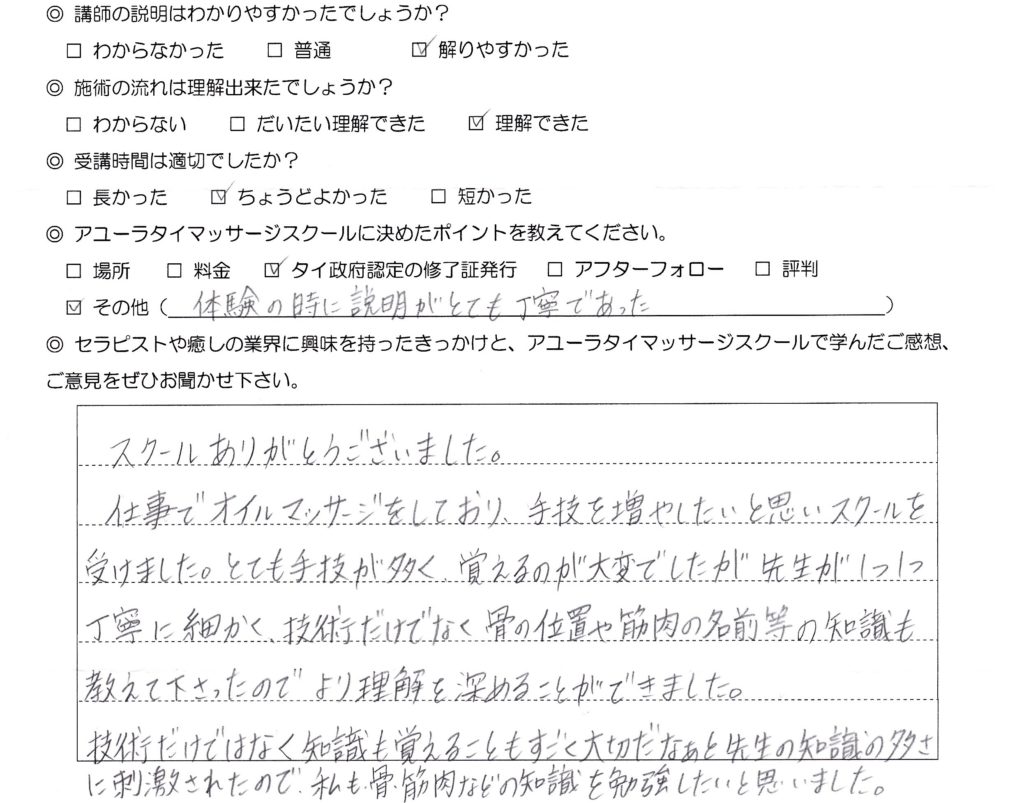 ◎ 講師の説明はわかりやすかったでしょうか？
□ わからなかった □ 普通 ☑ 解りやすかった
◎ 施術の流れは理解出来たでしょうか？
□ わからない □ だいたい理解できた ☑ 理解できた
◎ 受講時間は適切でしたか？
□ 長かった ☑ ちょうどよかった □ 短かった
◎ アユーラタイマッサージスクールに決めたポイントを教えてください。
□ 場所 □ 料金 ☑ タイ政府認定の修了証発行 □ アフターフォロー □ 評判
☑ その他（ 体験の時に説明がとても丁寧であった ）
◎ セラピストや癒しの業界に興味を持ったきっかけと、アユーラタイマッサージスクールで学んだご感想、
ご意見をぜひお聞かせ下さい。
スクールありがとうございました。
仕事でオイルマッサージをしており、手技を増やしたいと思いスクールを
受けました。とても手技が多く、覚えるのが大変でしたが先生が1つ1つ
丁寧に細かく、技術だけでなく骨の位置や筋肉の名前等の知識も
教えて下さったのでより理解を深めることができました。
技術だけではなく知識も覚えることもすごく大切だなぁと先生の知識の多さ
に刺激されたので、私も骨・筋肉などの知識を勉強したいと思いました。